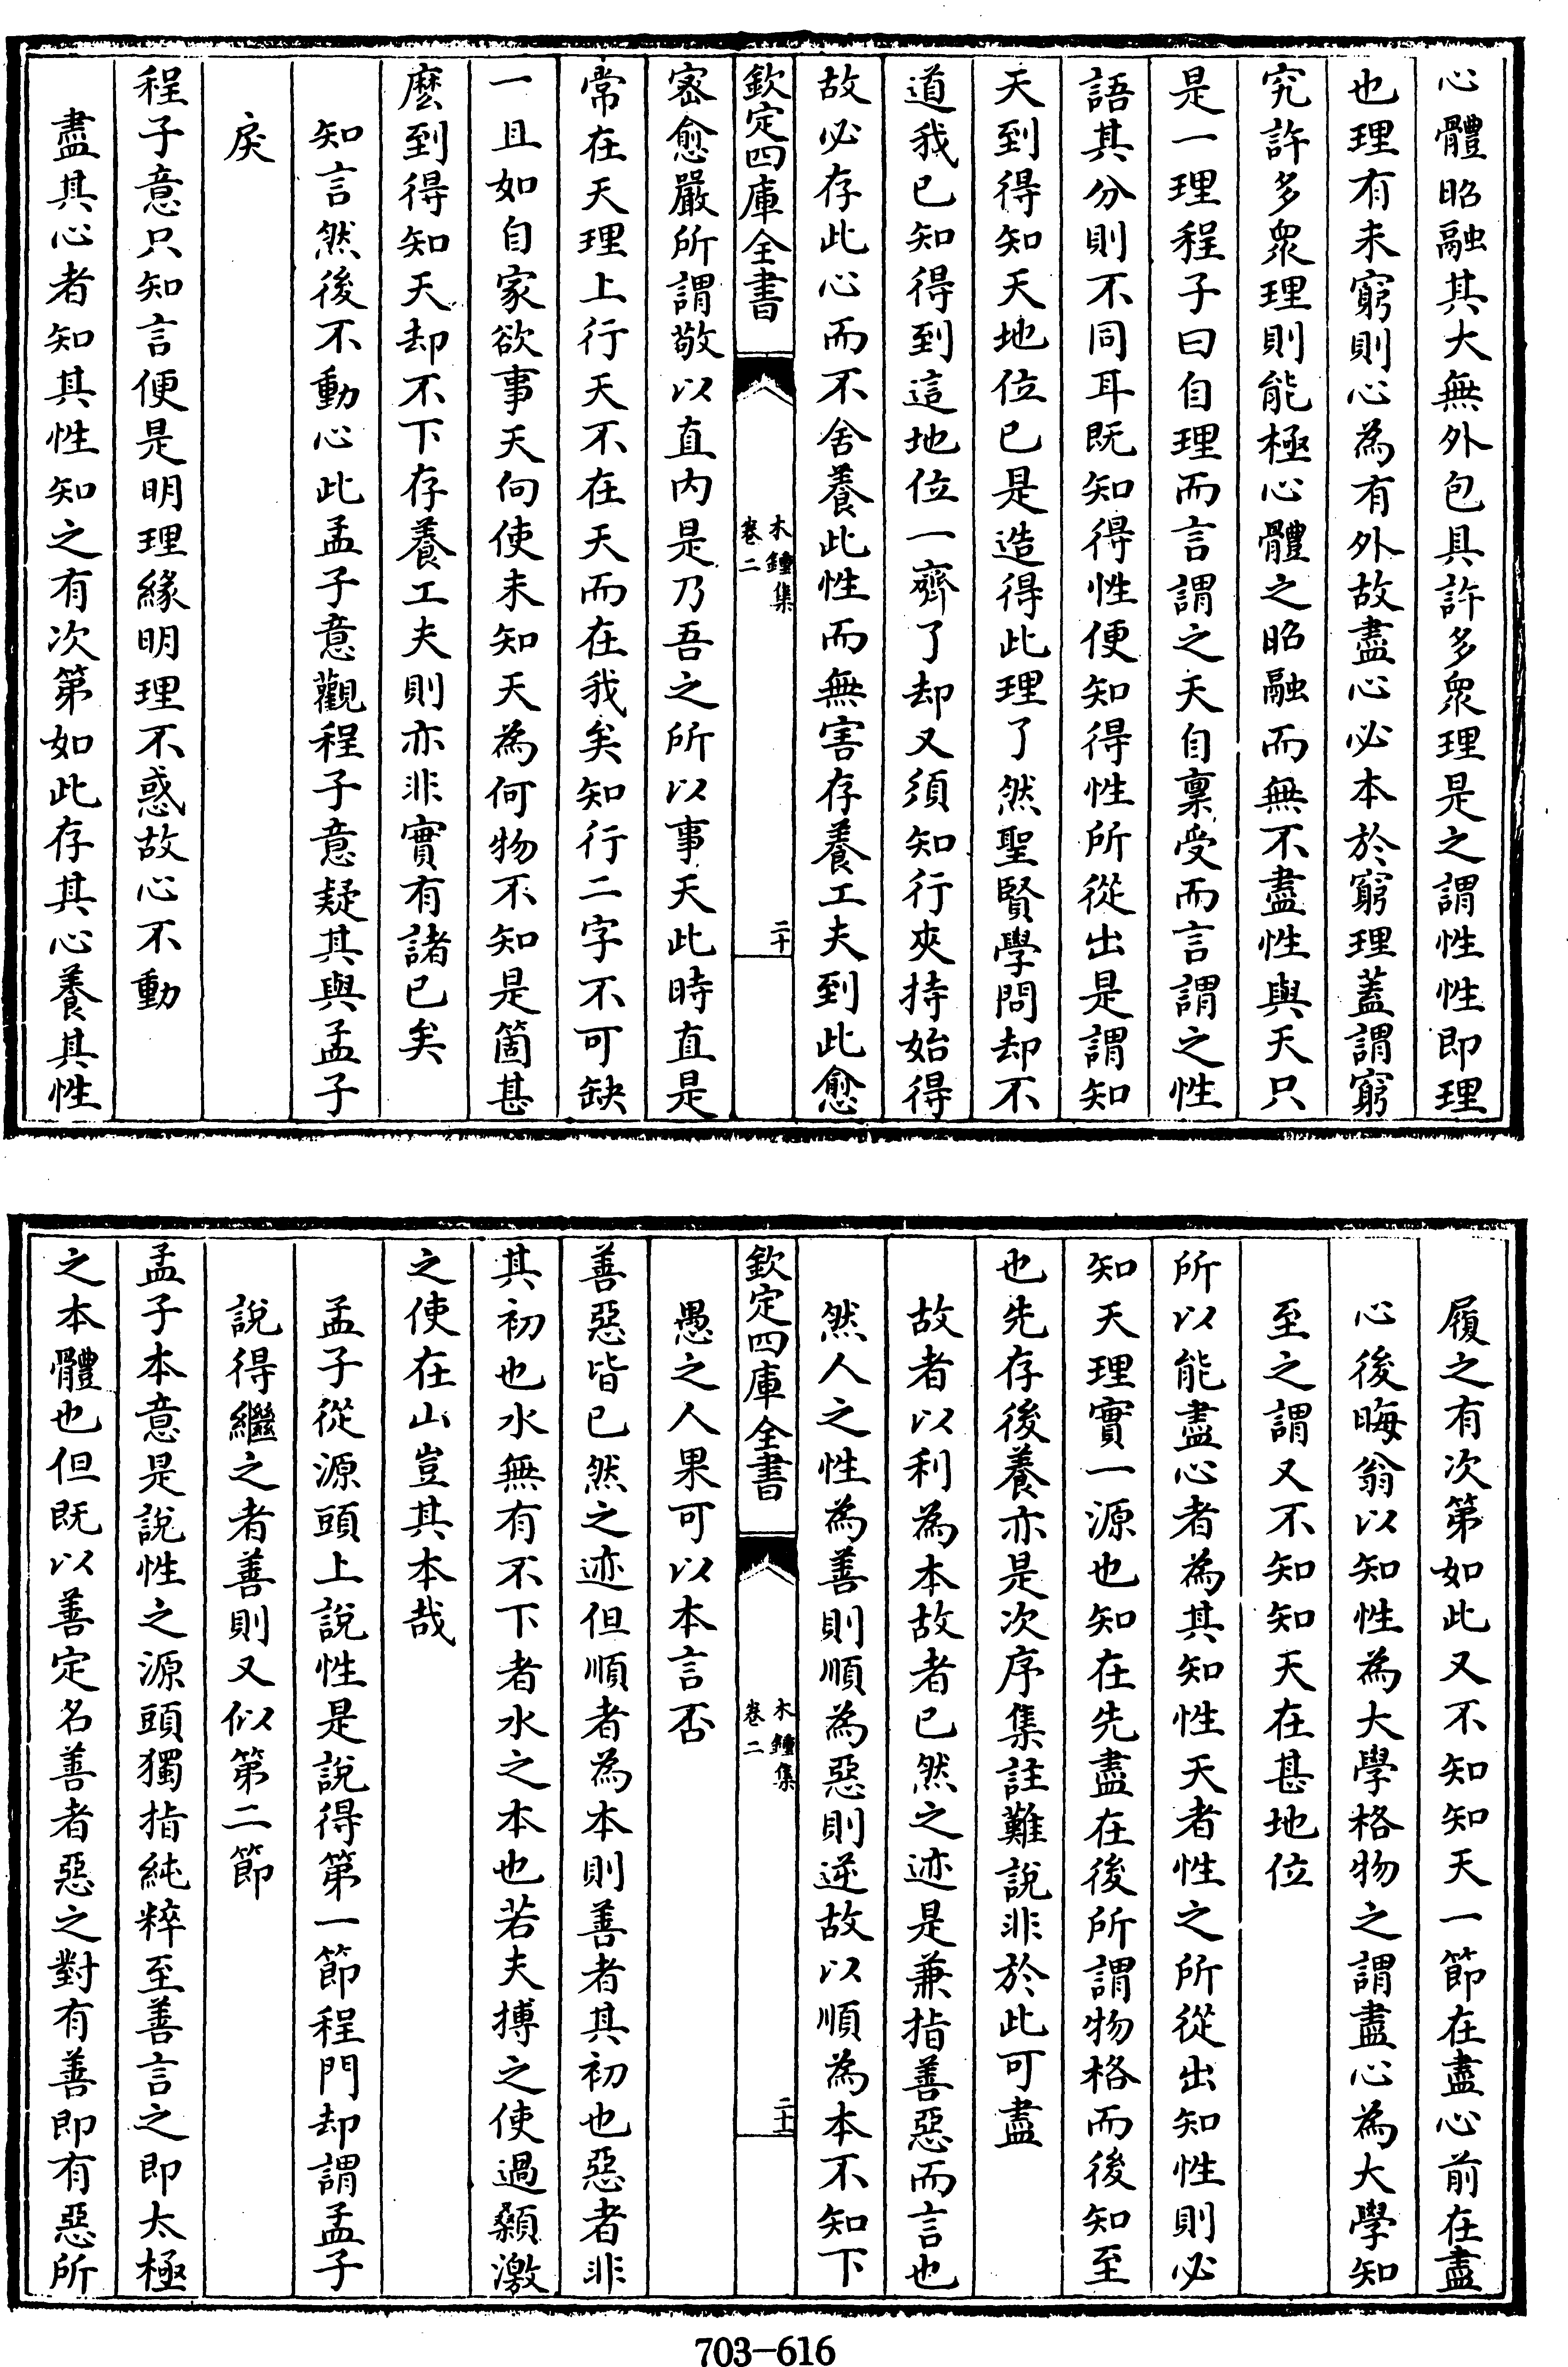 心體昭融其大無外包具許多衆理是之謂性性即理
也理有未窮則心為有外故盡心必本於窮理蓋謂窮
究許多衆理則能極心體之昭融而無不盡性與天只
是一理程子曰自理而言謂之天自稟受而言謂之性
語其分則不同耳既知得性便知得性所從出是謂知
天到得知天地位已是造得此理了然聖賢學問却不
道我已知得到這地位一齊了却又須知行夾持始得
故必存此心而不舍養此性而無害存養工夫到此愈
欽定四庫全書
木鍾集
卷二
二十
宻愈嚴所謂敬以直内是乃吾之所以事天此時直是
常在天理上行天不在天而在我矣知行二字不可缺
一且如自家欲事天向使未知天為何物不知是箇甚
麽到得知天却不下存養工夫則亦非實有諸已矣
知言然後不動心此孟子意觀程子意疑其與孟子
戾
程子意只知言便是明理緣明理不惑故心不動
盡其心者知其性知之有次第如此存其心養其性
履之有次第如此又不知知天一節在盡心前在盡
心後晦翁以知性為大學格物之謂盡心為大學知
至之謂又不知知天在甚地位
所以能盡心者為其知性天者性之所從出知性則必
知天理實一源也知在先盡在後所謂物格而後知至
也先存後養亦是次序集註難說非於此可盡
故者以利為本故者已然之迹是兼指善惡而言也
然人之性為善則順為惡則逆故以順為本不知下
欽定四庫全書
木鍾集
卷二
二十一
愚之人果可以本言否
善惡皆已然之迹但順者為本則善者其初也惡者非
其初也水無有不下者水之本也若夫搏之使過顙激
之使在山豈其本哉
孟子從源頭上說性是說得第一節程門却謂孟子
說得繼之者善則又似第二節
孟子本意是說性之源頭獨指純粹至善言之即太極
之本體也但既以善定名善者惡之對有善即有惡所
703-616